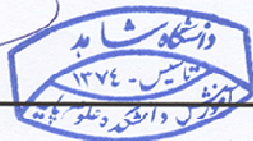 دانشگاه شاهد
تاسیس - ۱۳۷۴
آموزش دانشکده علوم پایه